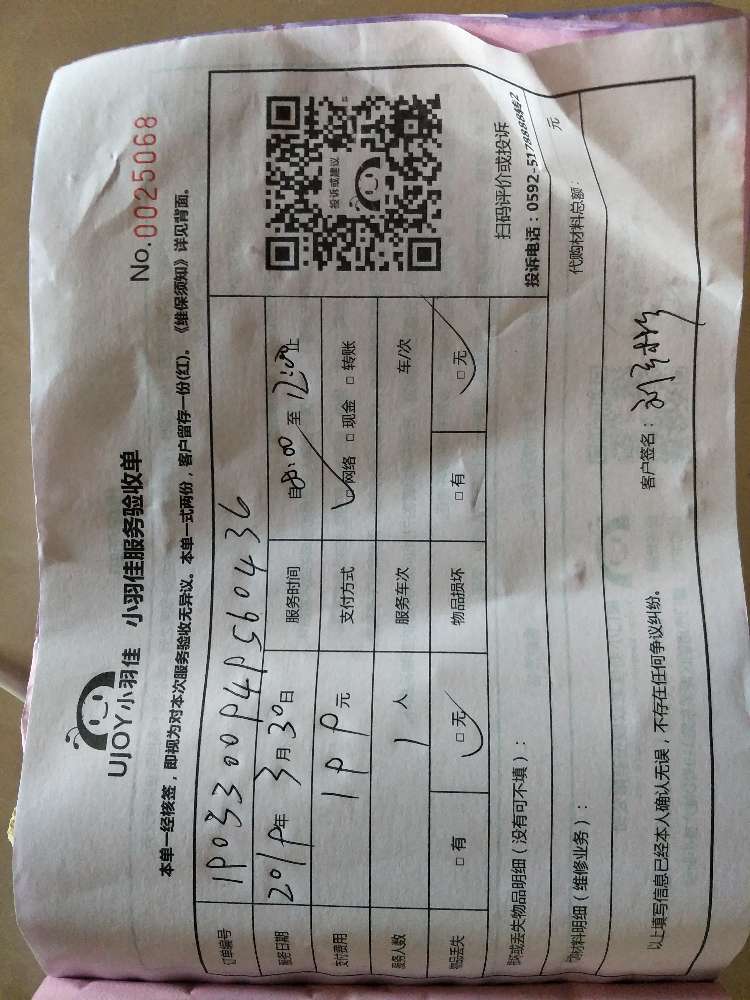 UJOY小羽佳 小羽佳服务验收单
No.0025068
本单一经核签，即视为对本次服务验收无异议。本单一式两份，客户留存一份(红)。《维保须知》详见背面。
订单编号 1903300949560436
服务日期 2019年3月30日 服务时间 自8:00至12:00止
支付费用 199元 支付方式 ☑网络 □现金 □转账
服务人数 1人 服务车次 车/次
物品丢失 □有 □无 物品损坏 □有 □无
投诉或建议
扫码评价或投诉
投诉电话：0592-5178888转2
坏或丢失物品明细（没有可不填）：
材料明细（维修业务）： 代购材料总额： 元
以上填写信息已经本人确认无误，不存在任何争议纠纷。 客户签名：